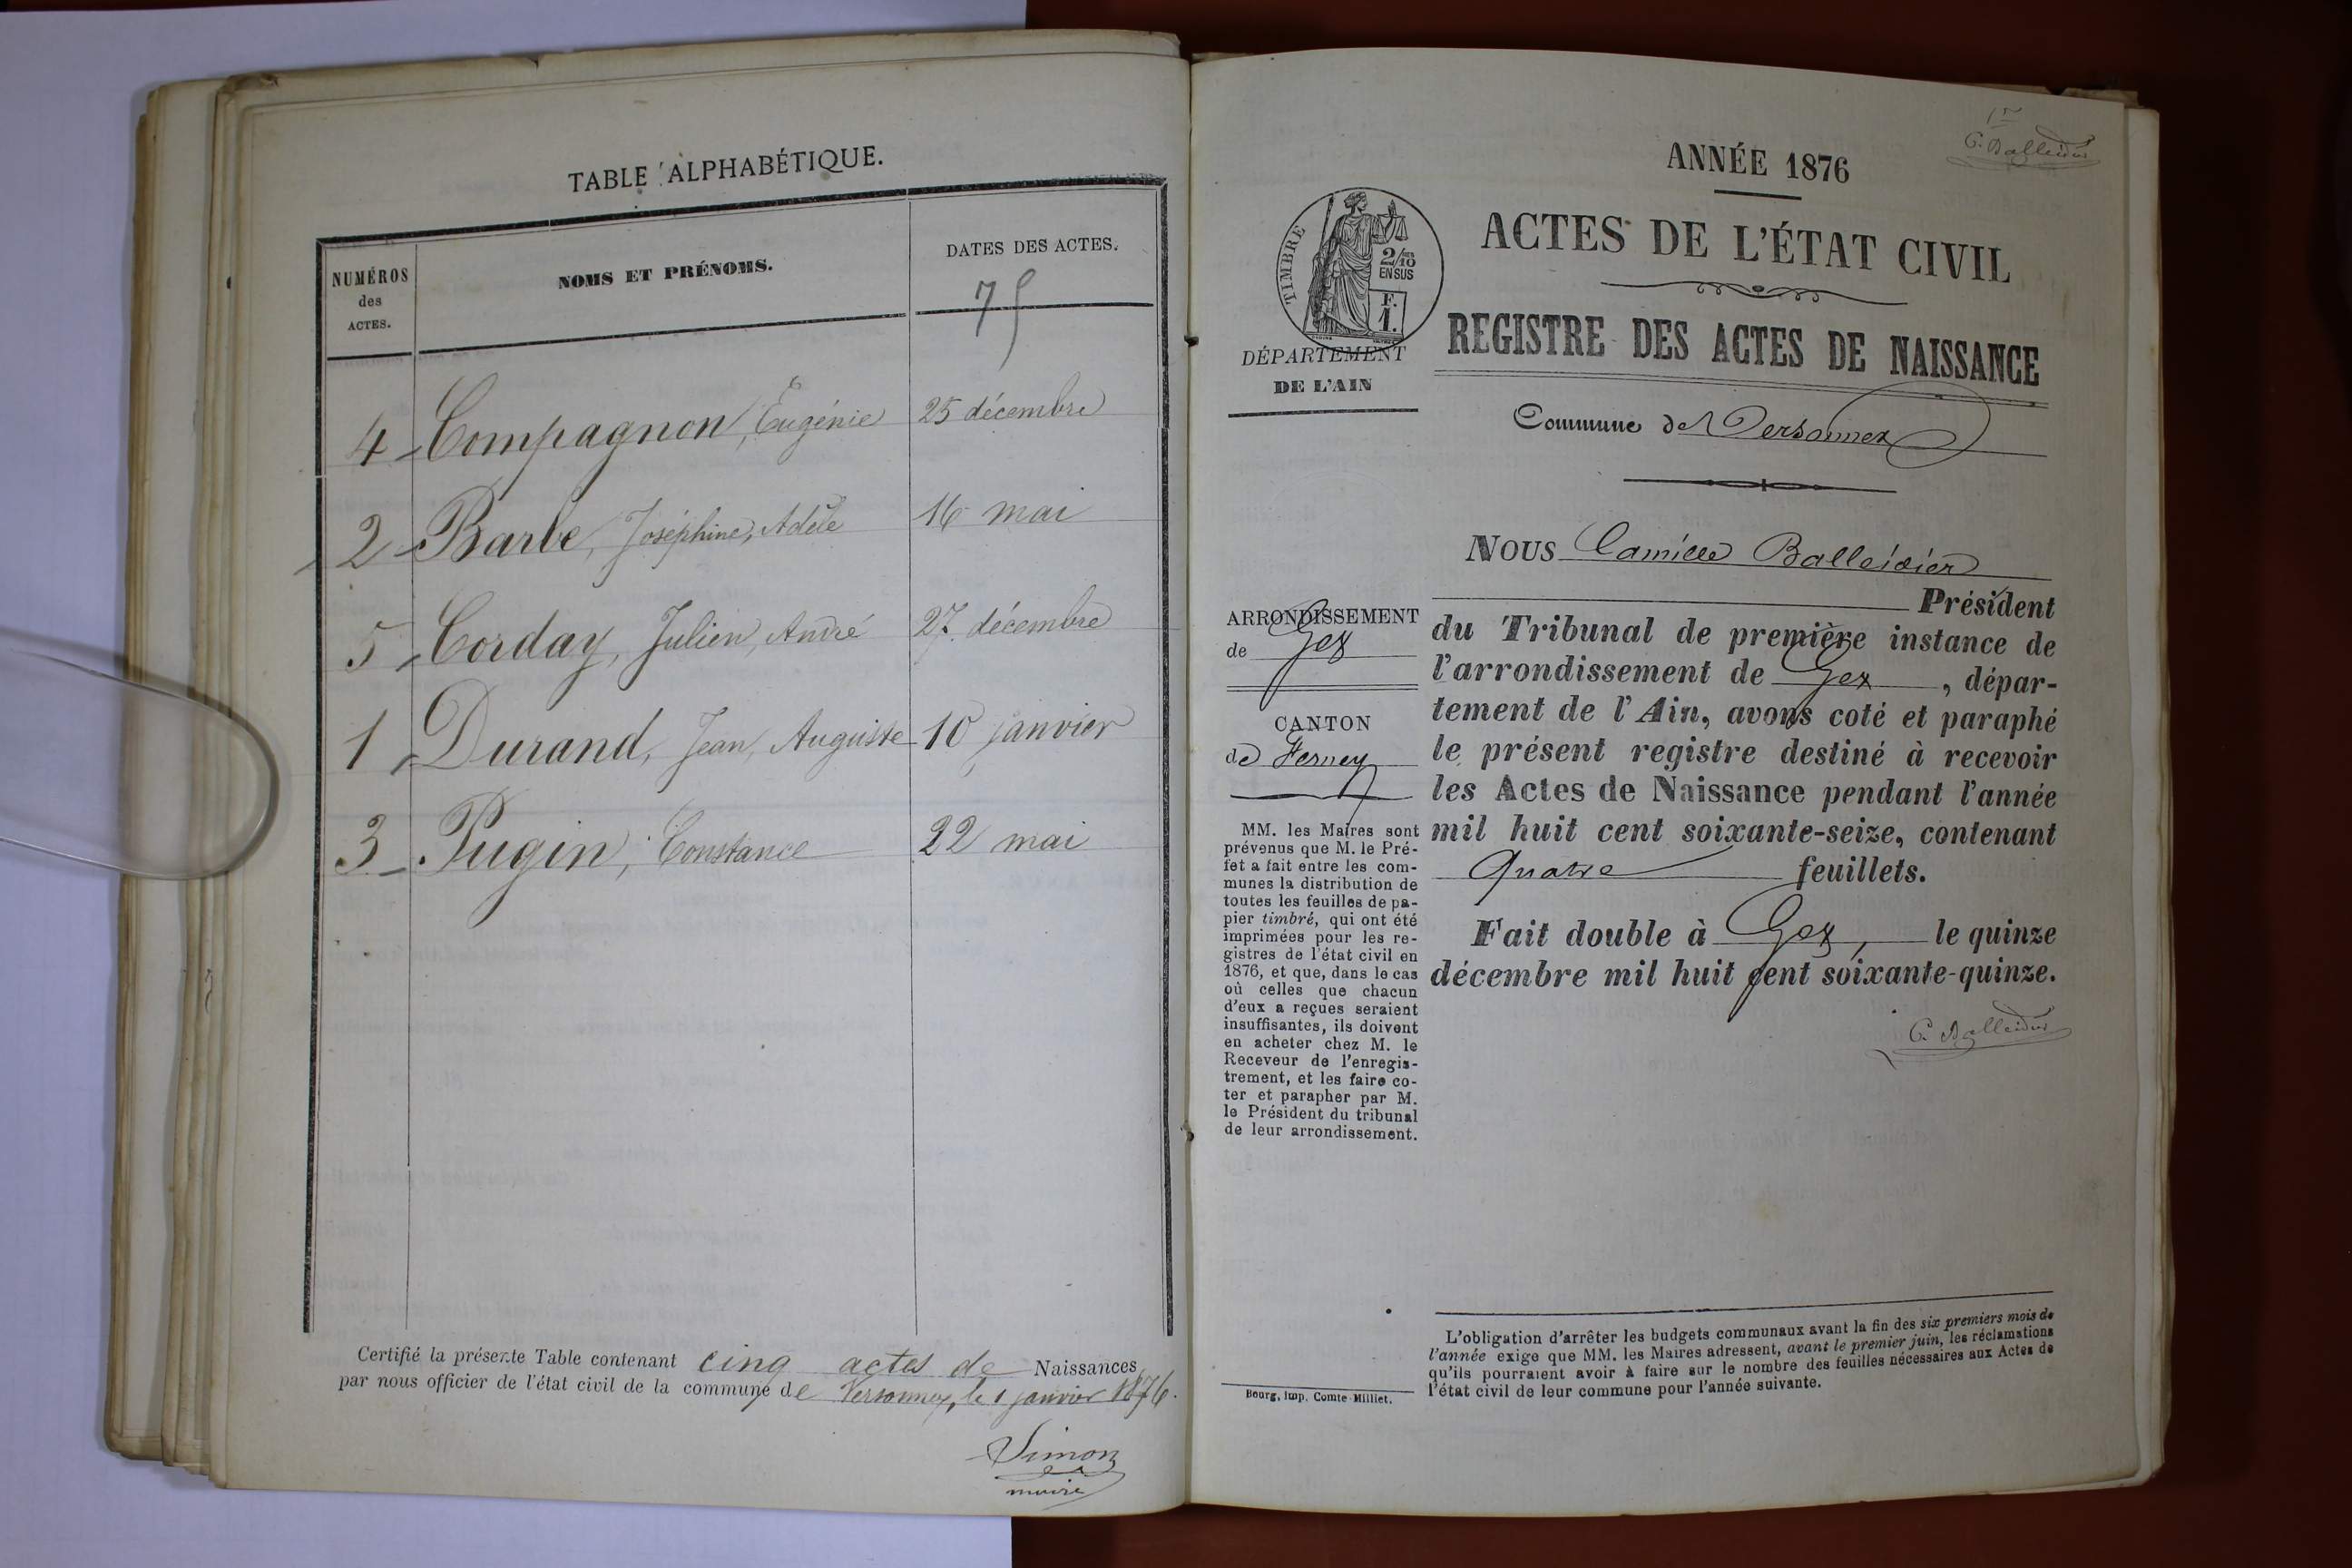 TABLE ALPHABÉTIQUE.
NUMÉROS
des
ACTES.
NOMS ET PRÉNOMS.
DATES DES ACTES.
75
4 Compagnon, Eugénie 25 décembre
2 Barbe, Joséphine, Adèle 16 mai
5 Corday, Julien, André 27 décembre
1 Durand, Jean, Auguste 10 janvier
3 Pugin, Constance 22 mai
Certifié la présente Table contenant cinq actes de Naissances
par nous officier de l'état civil de la commune de Versonnex, le 1 janvier 1876.
Simon
maire
1er
C. Balleidier
ANNÉE 1876
ACTES DE L'ÉTAT CIVIL
REGISTRE DES ACTES DE NAISSANCE
TIMBRE
2/10
EN SUS
F.
1.
DÉPARTEMENT
DE L'AIN
Commune de Versonnex
ARRONDISSEMENT
de Gex
CANTON
de Ferney
MM. les Maires sont
prévenus que M. le Pré-
fet a fait entre les com-
munes la distribution de
toutes les feuilles de pa-
pier timbré, qui ont été
imprimées pour les re-
gistres de l'état civil en
1876, et que, dans le cas
où celles que chacun
d'eux a reçues seraient
insuffisantes, ils doivent
en acheter chez M. le
Receveur de l'enregis-
trement, et les faire co-
ter et parapher par M.
le Président du tribunal
de leur arrondissement.
Nous Camille Balleidier
Président
du Tribunal de première instance de
l'arrondissement de Gex, dépar-
tement de l'Ain, avons coté et paraphé
le présent registre destiné à recevoir
les Actes de Naissance pendant l'année
mil huit cent soixante-seize, contenant
Quatre feuillets.
Fait double à Gex, le quinze
décembre mil huit cent soixante-quinze.
C. Balleidier
L'obligation d'arrêter les budgets communaux avant la fin des six premiers mois de
l'année exige que MM. les Maires adressent, avant le premier juin, les réclamations
qu'ils pourraient avoir à faire sur le nombre des feuilles nécessaires aux Actes de
l'état civil de leur commune pour l'année suivante.
Bourg, imp. Comte-Milliet.